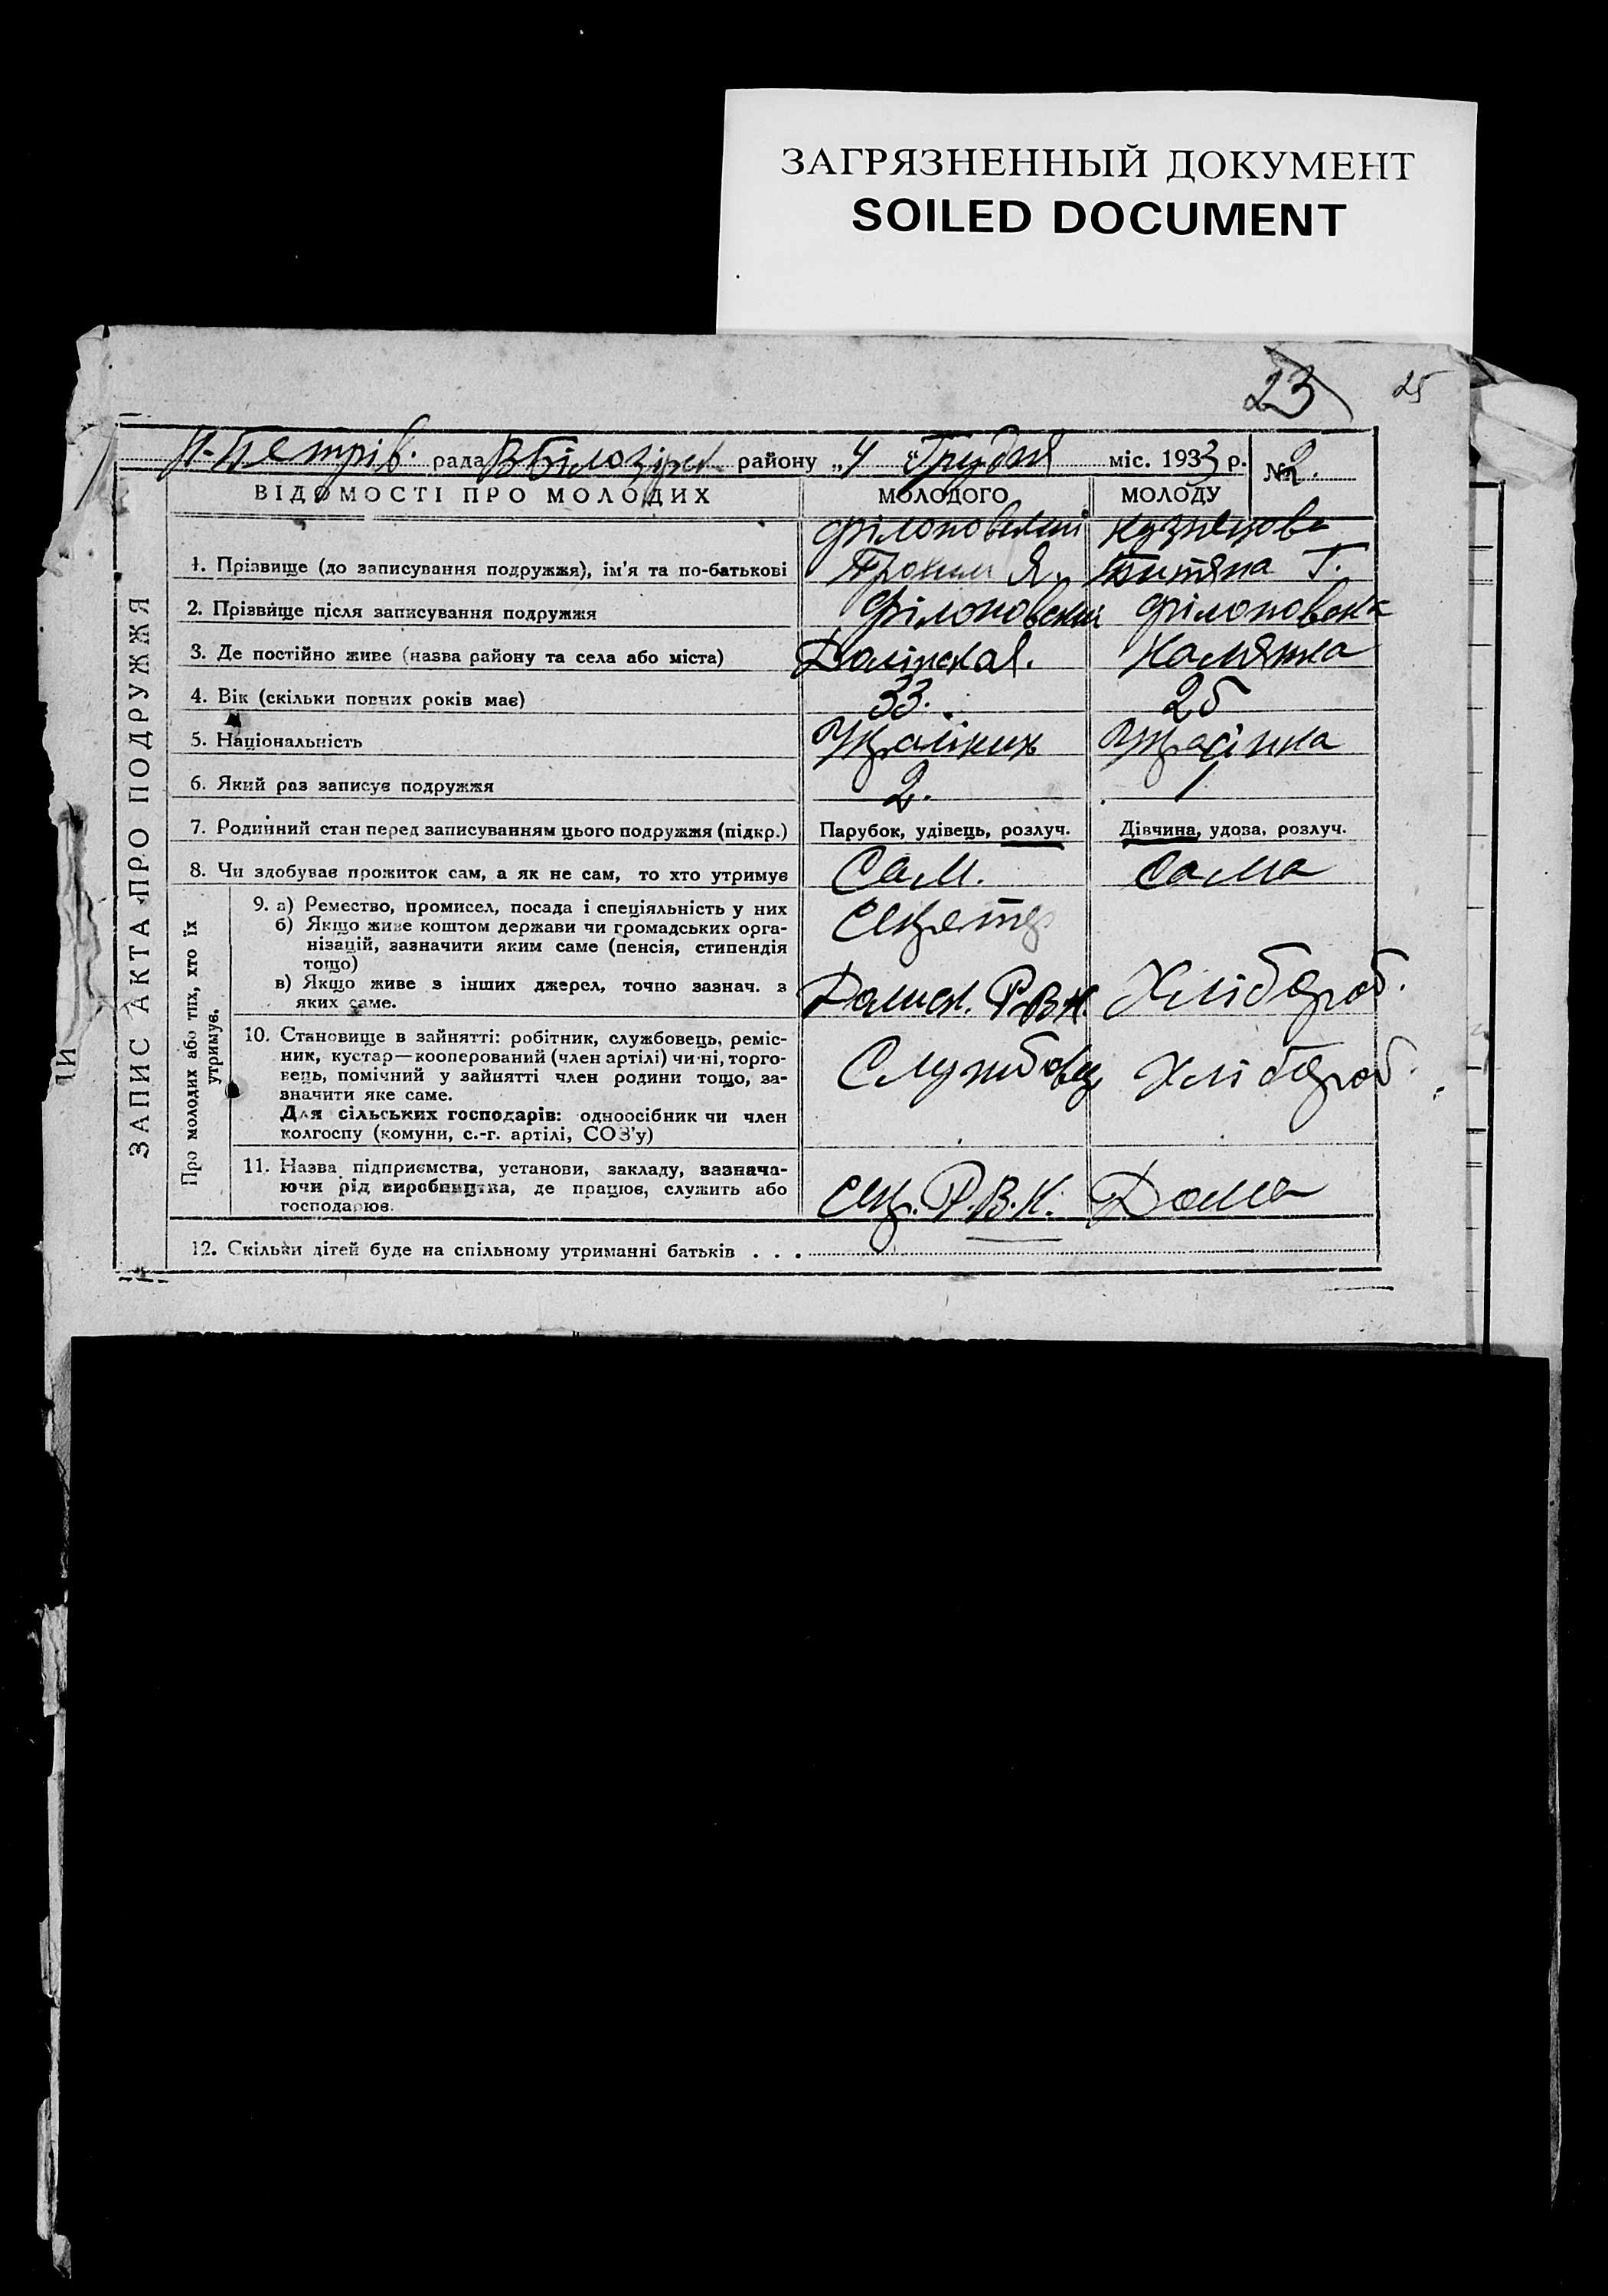 ЗАГРЯЗНЕННЫЙ ДОКУМЕНТ
SOILED DOCUMENT
23 25
Н-Петрів. рада В білозірск району „4 “ Грудня міс. 1933 р. № 2.
ВІДОМОСТІ ПРО МОЛОДИХ МОЛОДОГО МОЛОДУ
ЗАПИС АКТА ПРО ПОДРУЖЖЯ
1. Прізвище (до записування подружжя), ім'я та по-батькові
Я. Т.
2. Прізвище після записування подружжя
3. Де постійно живе (назва району та села або міста)
4. Вік (скільки повних років має) 33.
5. Національність
6. Який раз записує подружжя 2. 1
7. Родинний стан перед записуванням цього подружжя (підкр.) Парубок, удівець, розлуч. Дівчина, удова, розлуч.
8. Чи здобував прожиток сам, а як не сам, то хто утримує Сам. Сама
Про молодих або тих, хто їх утримує.
9. а) Ремество, промисел, посада і спеціяльність у них
б) Якщо живе коштом держави чи громадських орга-
нізацій, зазначити яким саме (пенсія, стипендія
тощо)
в) Якщо живе з інших джерел, точно зазнач. з
яких саме.
Р.В.К. Хлібороб.
10. Становище в зайнятті: робітник, службовець, реміс-
ник, кустар—кооперований (член артілі) чи ні, торго-
вець, помічний у зайнятті член родини тощо, за-
значити яке саме.
Для сільських господарів: одноосібник чи член
колгоспу (комуни, с.-г. артілі, СОЗ'у)
Службовец Хлібороб.
11. Назва підприємства, установи, закладу, зазнача-
ючи рід виробництва, де працює, служить або
господарює.
Р.В.К. Дома
12. Скільки дітей буде на спільному утриманні батьків . . .